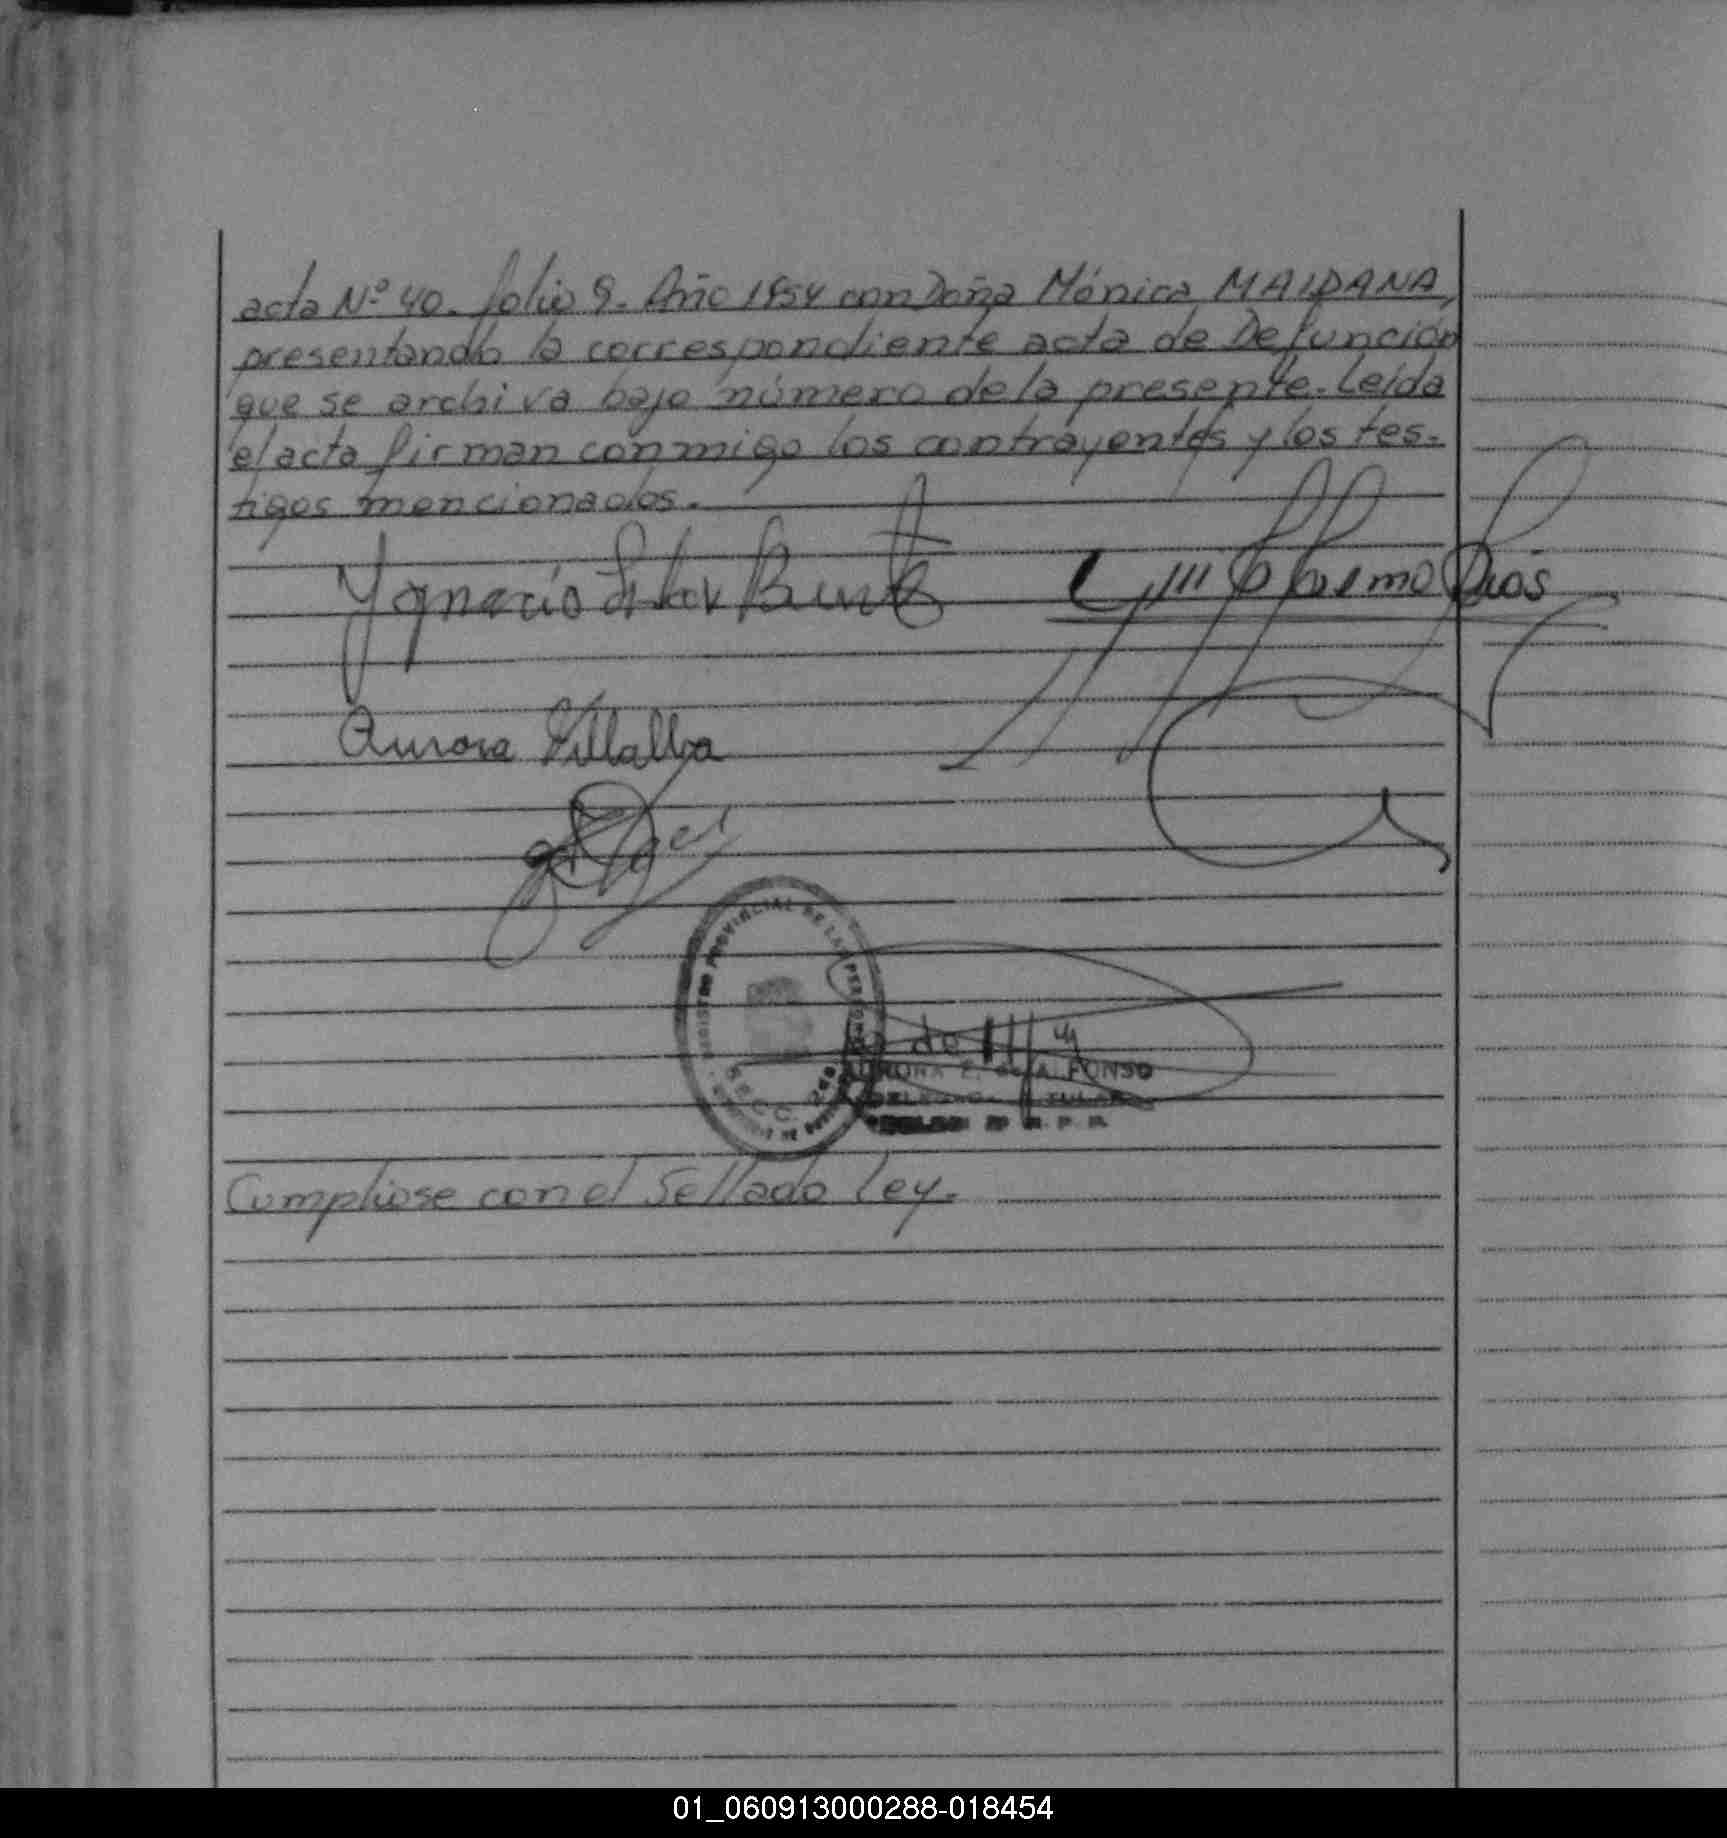 acta Nº 40. folio 9. Año 1954 con Doña Mónica MAIDANA,
presentando la correspondiente acta de Defunción
que se archiva bajo número de la presente. Leída
el acta firman conmigo los contrayentes y los tes-
tigos mencionados.
Ygnacio
Guillermo Rios
Aurora Villalba
REGISTRO PROVINCIAL DE LAS PERSONAS
SECC. 2da
AURORA E. de ALFONSO
R. P. P.
Cumpliose con el Sellado Ley.
01_060913000288-018454